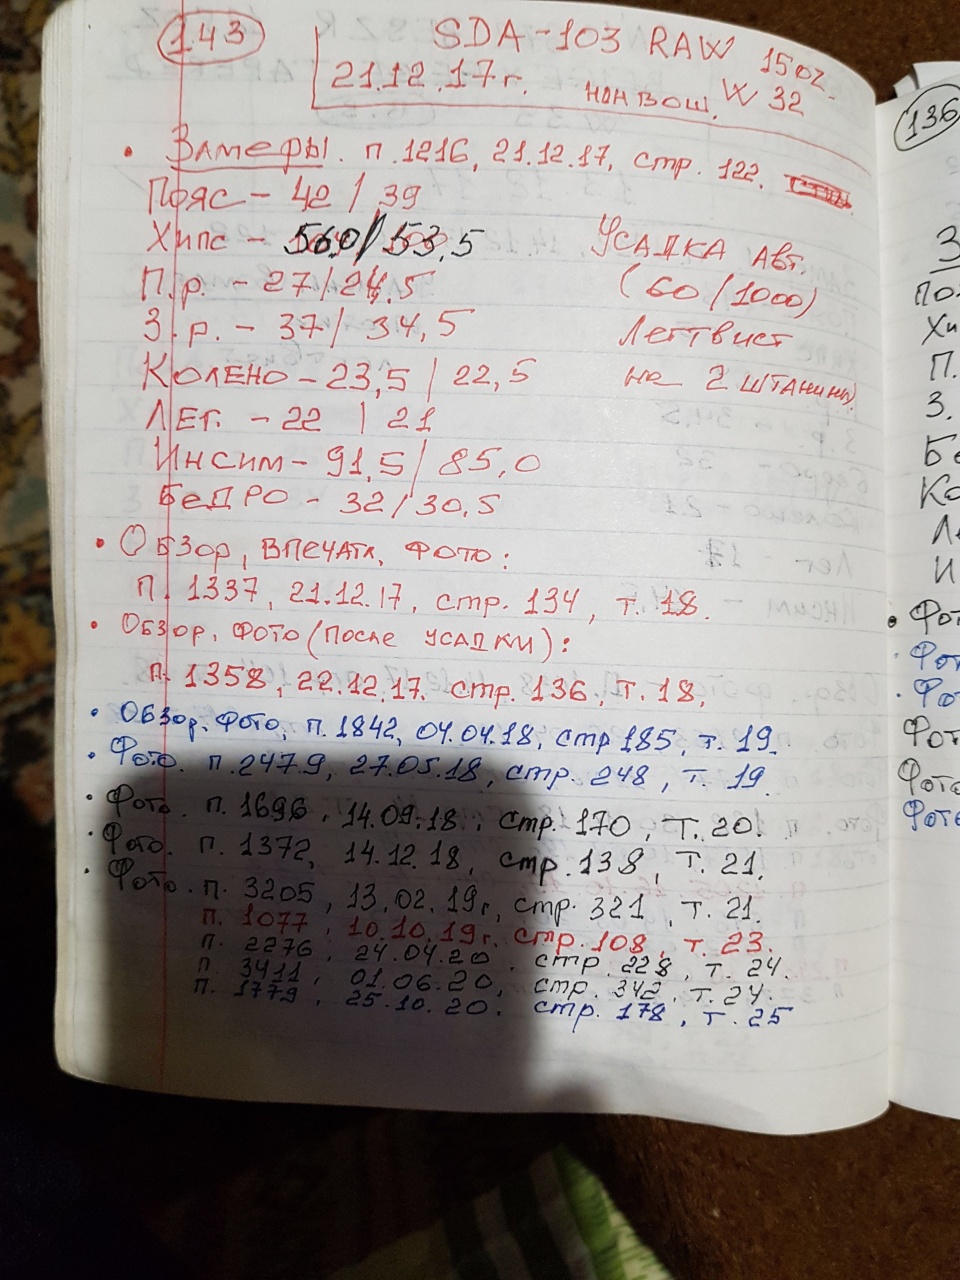 143
SDA-103 RAW 15oz.
21.12.17г. нонвош. W 32
• Замеры. п.1216, 21.12.17, стр. 122.
Пояс - 42 / 39
Хипс - 56,0 / 53,5 Усадка авт.
П.р. - 27 / 24,5 (60/1000)
З.р. - 37 / 34,5 Легтвист
Колено - 23,5 / 22,5 на 2 штанины)
Лег. - 22 / 21
Инсим - 91,5 / 85,0
Бедро - 32 / 30,5
• Обзор, впечатл, фото:
п. 1337, 21.12.17, стр. 134, т. 18.
• Обзор, фото (после усадки):
п. 1358, 22.12.17. стр. 136, т. 18.
• Обзор. Фото, п. 1842, 04.04.18, стр 185, т. 19.
• Фото. п. 2479, 27.05.18, стр. 248, т. 19.
• Фото. п. 1696, 14.09.18. стр. 170, т. 20.
• Фото. п. 1372, 14.12.18, стр. 138, т. 21.
• Фото. п. 3205, 13.02.19г, стр. 321, т. 21.
п. 1077, 10.10.19г. стр. 108, т. 23.
п. 2276, 24.04.20, стр. 228, т. 24.
п. 3411, 01.06.20, стр. 342, т. 24.
п. 1779, 25.10.20. стр. 178, т. 25
136
З
По
Хи
П.
З.
Бе
Ко
Ле
И
• Фот
• Фот
• Фот
Фот
Фото
Фото